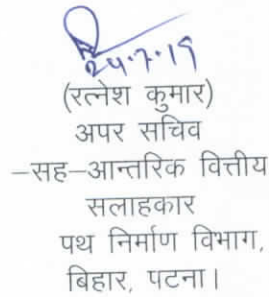 24.7.19
(रत्नेश कुमार)
अपर सचिव
–सह–आन्तरिक वित्तीय
सलाहकार
पथ निर्माण विभाग,
बिहार, पटना।